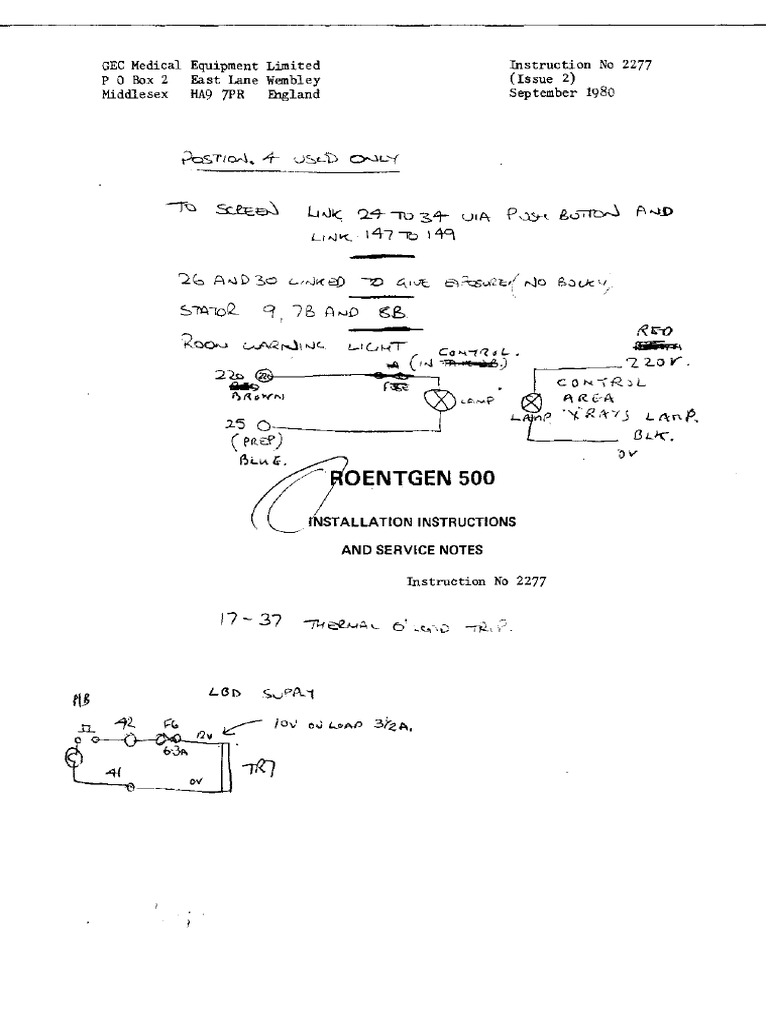 GEC Medical Equipment Limited
P O Box 2 East Lane Wembley
Middlesex HA9 7PR England
Instruction No 2277
(Issue 2)
September 1980
POSTION. 4 USED ONLY
TO SCREEN LINK 24 TO 34 VIA PUSH BUTTON AND
LINK 147 TO 149
26 AND 30 LINKED TO GIVE EXPOSURE (NO BUCKY)
STATOR 9, 7B AND 8B
ROOM WARNING LIGHT
(IN CONTROL.)
220
BROWN
FUSE
LAMP
25
(PREP)
BLUE.
RED
220V.
CONTROL
AREA
LAMP XRAYS LAMP.
BLK.
0V
ROENTGEN 500
INSTALLATION INSTRUCTIONS
AND SERVICE NOTES
Instruction No 2277
17-37 THERMAL O'LOAD TRIP.
LBD SUPPLY
P/B
42 F6 12V
6.3A
10V ON LOAD 3½A.
41 0V
TR7